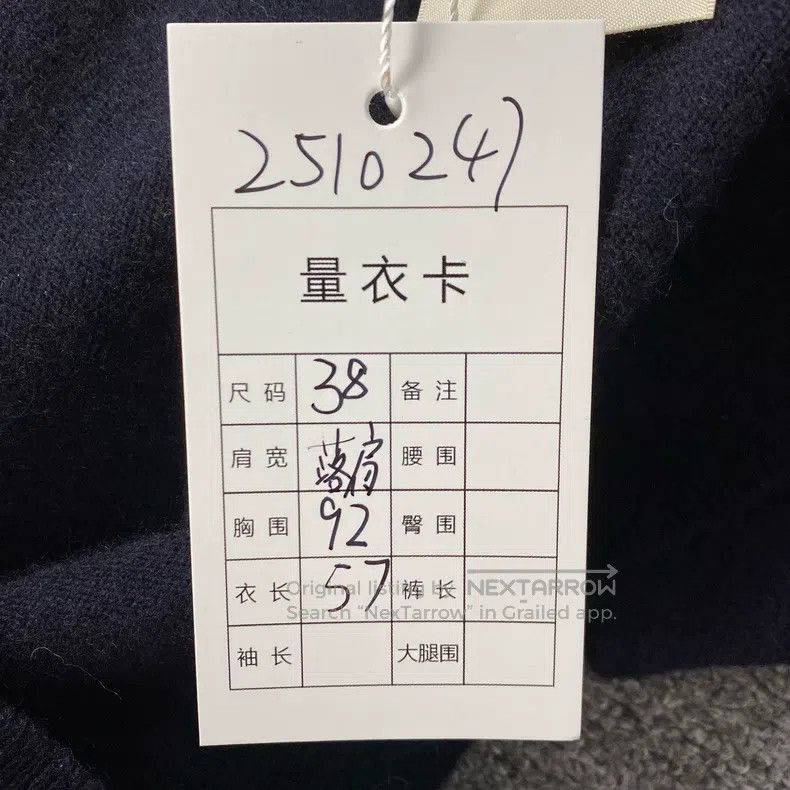 2510247
量衣卡
尺码 38 备注
肩宽 落肩 腰围
胸围 92 臀围
衣长 57 裤长
袖长 大腿围
Original listing by NEXTARROW
Search “NexTarrow” in Grailed app.